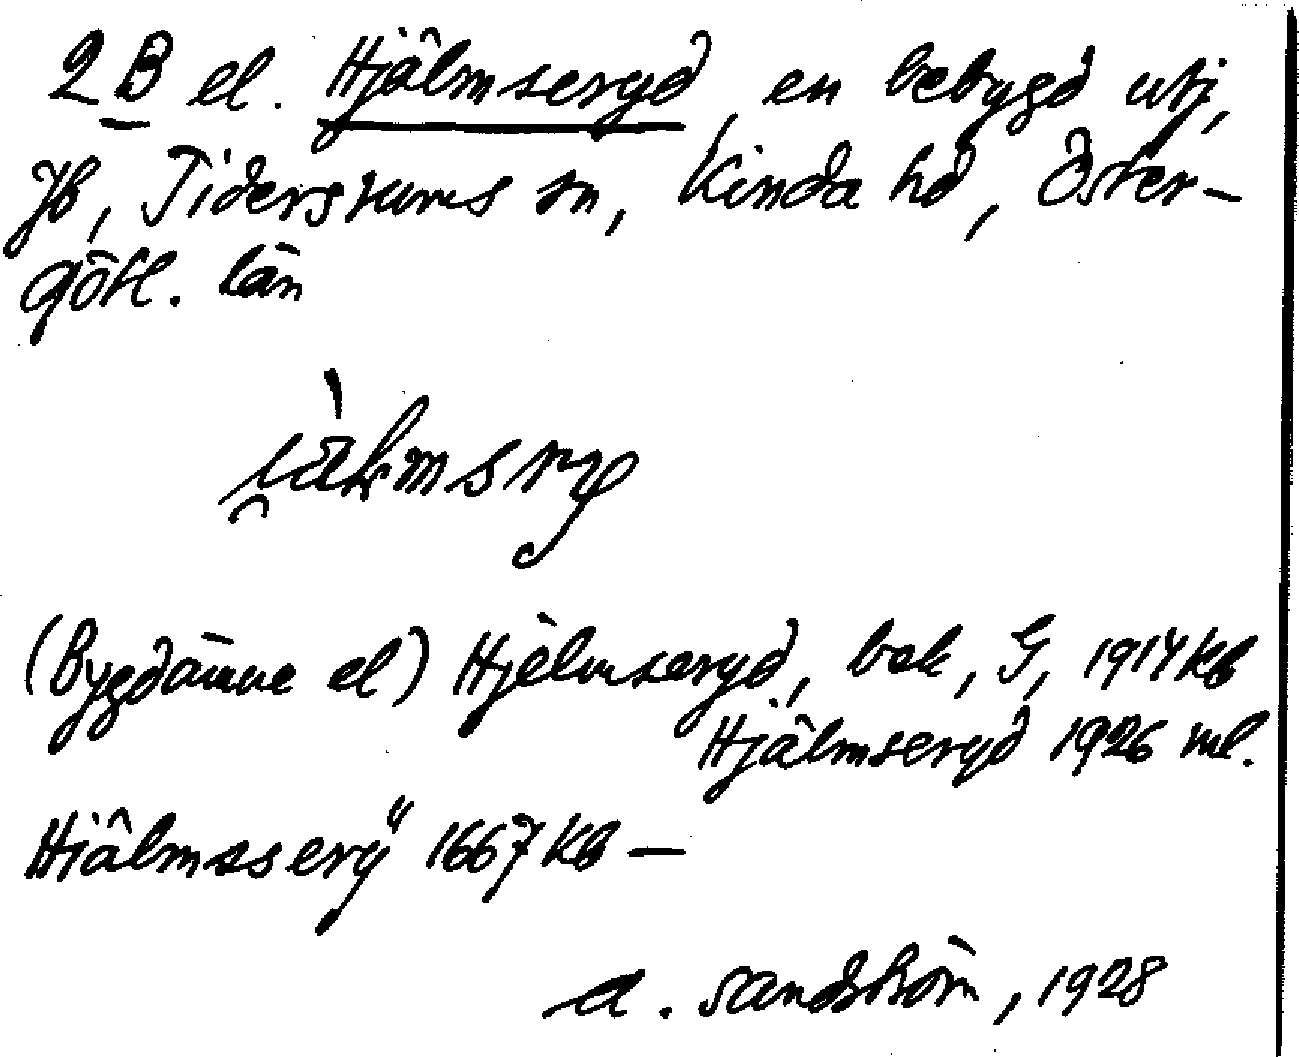 2 B el. Hjälmseryd, en bebygd utj,
Jb, Tidersrums sn, Kinda hd, Öster-
götl. län
(Bygdämne el) Hjelmseryd, bak, G, 1914 Kb
Hjälmseryd 1926 ml.
Hiälmsserÿ 1667 Kb —
A. Sandström, 1928